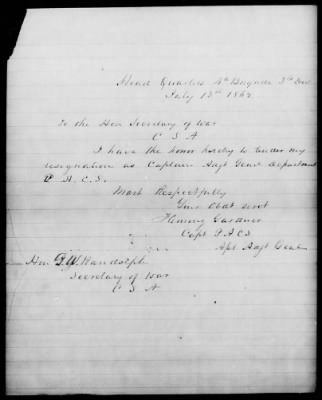 Head Quarters 4th Brigade 3d Div
July 13th 1862
To the Hon Secretary of War
C S A
I have the honor hereby to tender my
resignation as Captain Asgt Genl department
P. A. C. S.
Most Respectfully
Your Obdt servt
Fleming Gardner
Capt P A C S
Asgt Genl
Hon G. W. Randolph
Secretary of War
C S A